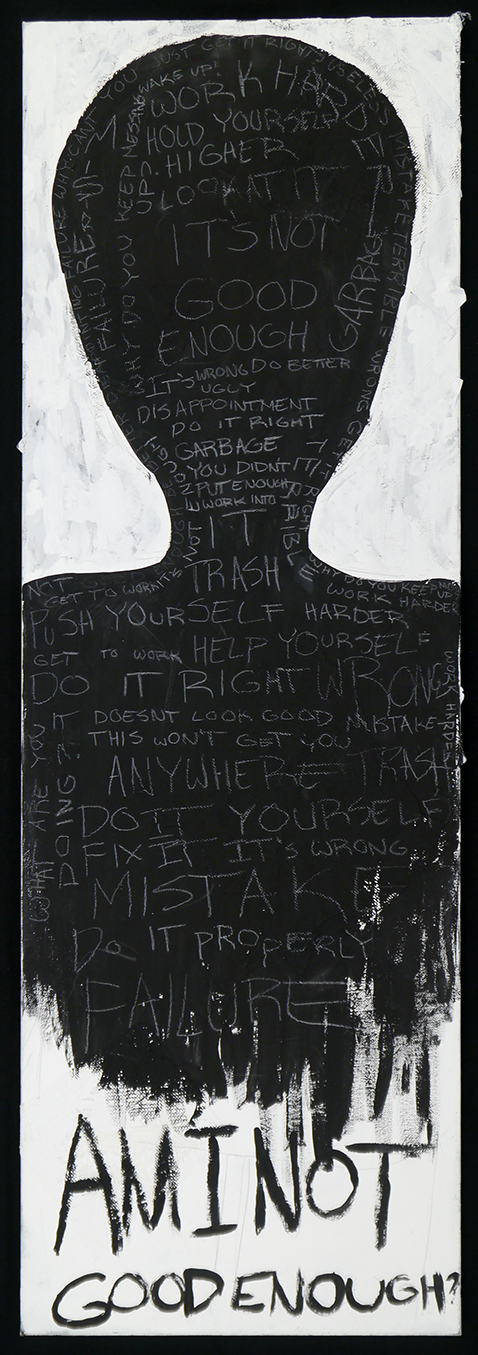 WHY CAN'T YOU JUST GET IT RIGHT? USELESS
WAKE UP!
WORK HARDER
HOLD YOURSELF
HIGHER
LOOK AT IT
IT'S NOT
GOOD
ENOUGH
GARBAGE
FAILURE
WHY DO YOU KEEP MESSING UP?
IT'S WRONG DO BETTER
UGLY
DISAPPOINTMENT
DO IT RIGHT
GARBAGE
YOU DIDN'T
PUT ENOUGH
WORK INTO
IT
TERRIBLE
TRASH
NOT
GET TO WORK
WHY DO YOU KEEP
WORK HARDER
PUSH YOURSELF HARDER
GET TO WORK HELP YOURSELF
DO IT RIGHT WRONG
WORK HARDER
DOESNT LOOK GOOD MISTAKE
THIS WON'T GET YOU
ANYWHERE TRASH
WHAT ARE YOU
DOING?
DO IT YOURSELF
FIX IT IT'S WRONG
MISTAKE
DO IT PROPERLY
FAILURE
AM I NOT
GOOD ENOUGH?